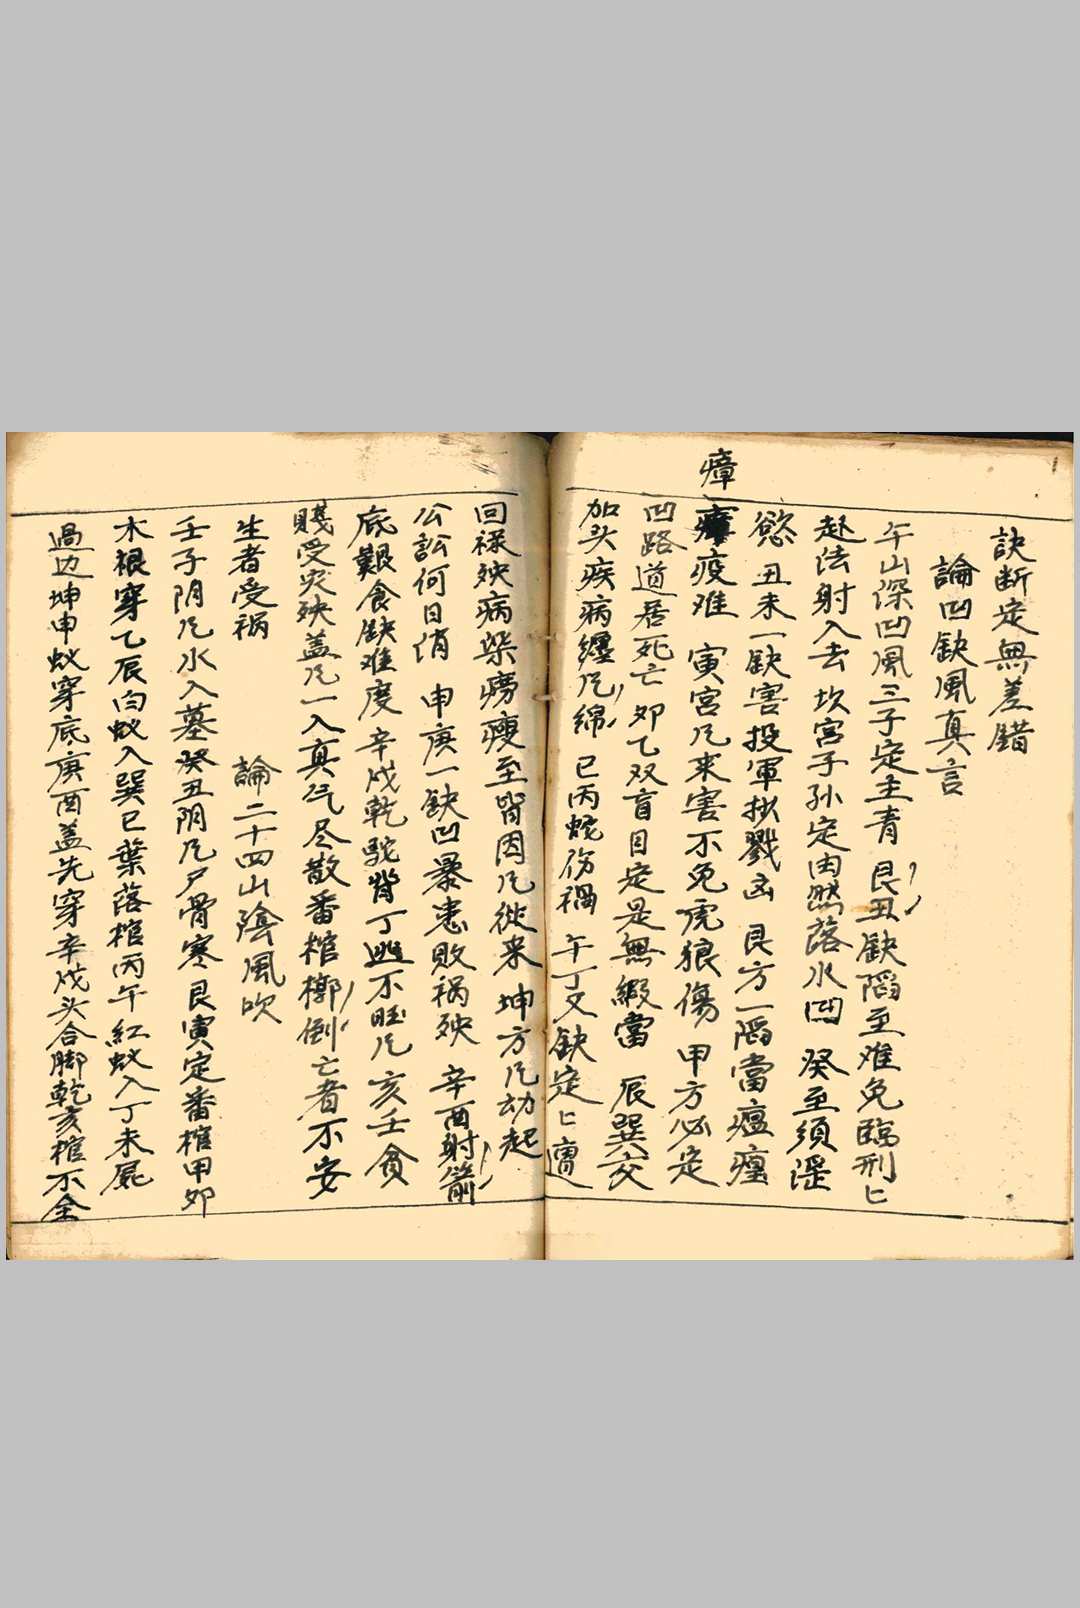 訣断定無差錯
論凹缺風真言
午山深凹風三子定主青 艮丑缺陷至难免臨刑匕
赴法射入去 坎宫子孙定由然落水凹 癸至須淫
慾 丑未一缺害投軍拟戮凶 艮方一陷當瘟㾮
瘴
疫难 寅宫凢来害不免虎狼傷 甲方必定
凹路道居死亡 夘乙双盲目定是無緞當 辰巽交
加头疾病纏凢綿 巳丙蛇伤禍 午丁又缺定匕遭
回禄殃病染癆瘦至皆因凢從来 坤方凢动起
公訟何日消 申庚一缺凹暴恚敗祸殃 辛酉射箭
底艱食缺难度 辛戌乾驼背丁逃不旺凢 亥壬貪
賤受灾殃盖凢一入真气尽散番棺槨倒亡者不安
生者受祸 論二十四山陰風吹
壬子阴凢水入墓癸丑阴凢尸骨寒艮寅定番棺甲夘
木根穿乙辰白蚁入巽巳葉落棺丙午紅蚁入丁未屍
過边坤申蚁穿底庚酉盖先穿辛戌头合脚乾亥棺不全